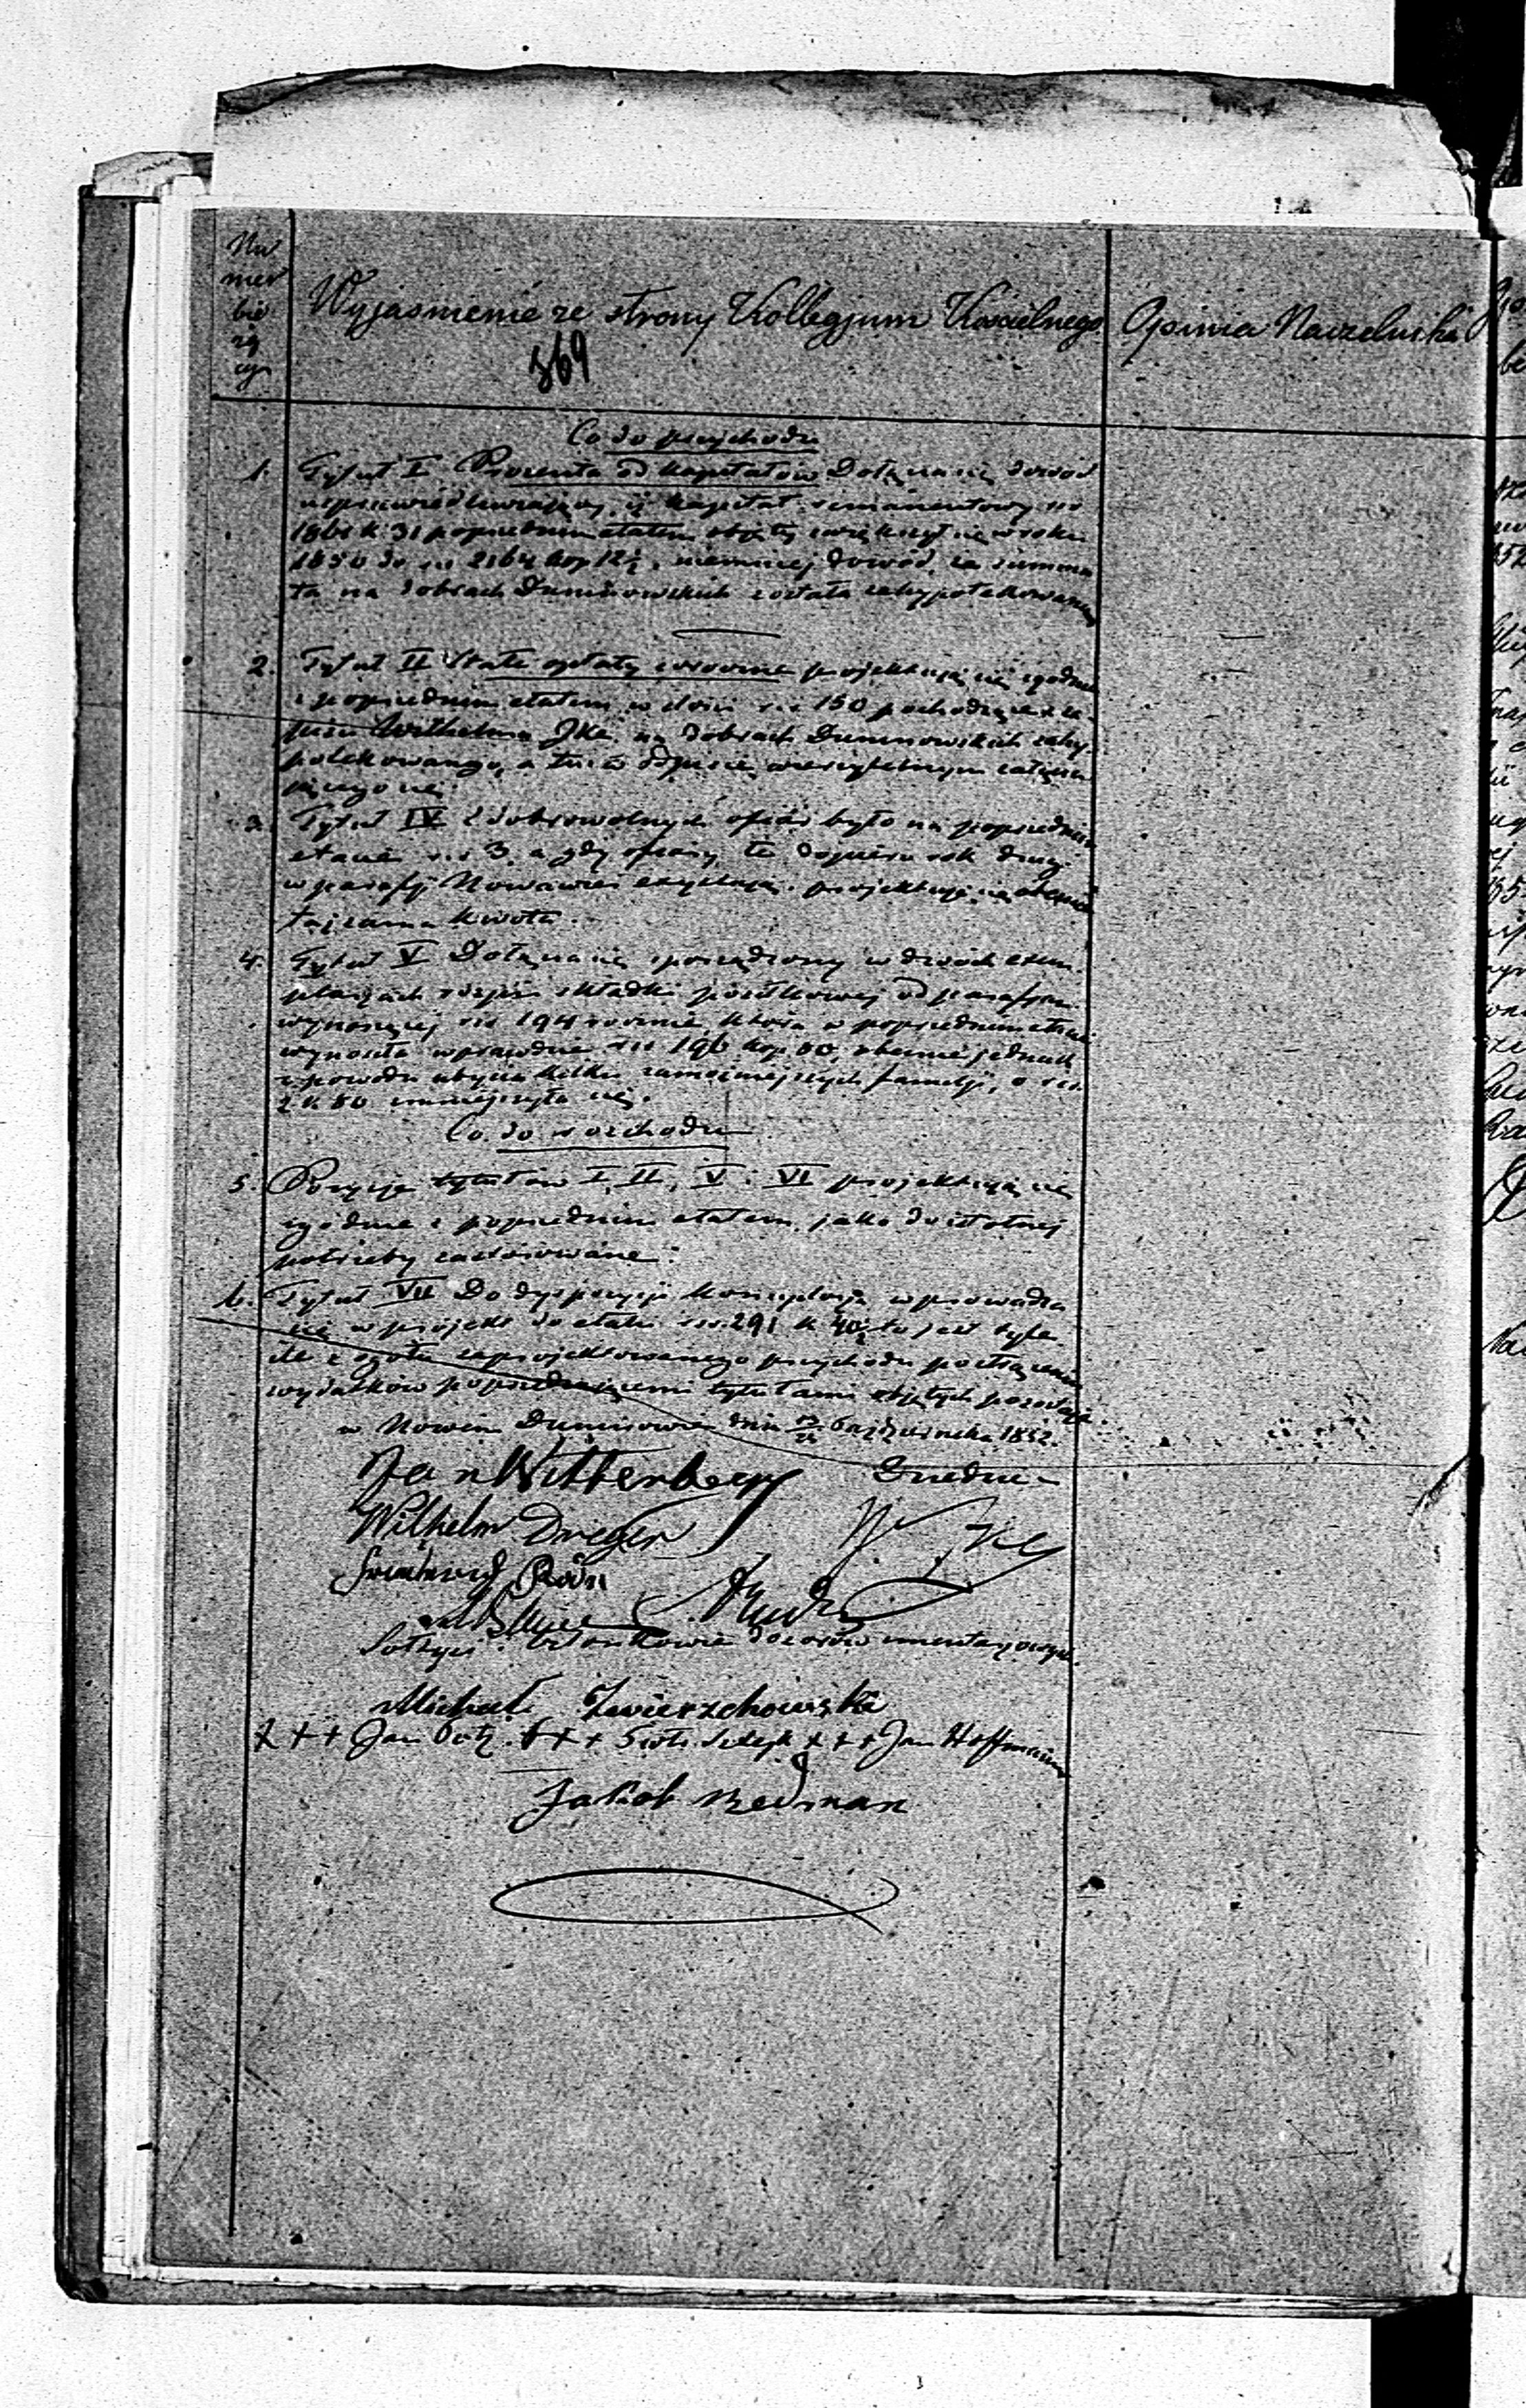 Nu
mer
bie
żą
cy
Wyjaśnienie ze strony Kollegjum Kościelnego
Opinia Naczelnika
369
Co do przychodu
1. Tytuł I Procenta od kapitałów Dołącza się dowód
usprawiedliwiający, iż kapitał remanentowy rs
1861 k 31 poprzednim etatem objęty zwiększył się w roku
1850 do rs 2164 kop 12½, niemniej dowód, że summa
ta na dobrach Duninowskich została zahypotekowana
2. Tytuł II Stałe opłaty roczne projektują się zgodnie
z poprzednim etatem w ilości rs 150 pochodzące z za-
pisu Wilhelma Ike na dobrach Duninowskich zahy-
potekowanego, a tu w odpisie wierzytelnym załącza-
jącego się.
3. Tytuł IV Z dobrowolnych ofiar było na poprzednim
etacie rs 3, a gdy ofiary te dopiero rok drugi
w parafji Nowawieś exystują, projektuje się obecnie
taż sama kwota.
4. Tytuł V Dołącza się sporządzony w dwóch exem-
plarzach rozpis składki od parafjan
wynoszącej rs 194 rocznie, która w poprzednim etacie
wynosiła wprawdzie rs 196 kop 80, obecnie jednak
z powodu ubycia kilku zamożniejszych familji, o rs
2 k 80 zmniejszyła się.
Co do rozchodu
5. Pozycje tytułów I, II, V i VI projektują się
zgodnie z poprzednim etatem, jako do istotnej
potrzeby zastosowane.
6. Tytuł VII Do dyspozycji wprowadza
się w projekt do etatu rs. 291 k 40½ to jest tyle
ile z ogółu zaprojektowanego przychodu po strąceniu
wydatków poprzedzającemi tytułami objętych pozostaje.
w Nowym Duninowie dnia Października 1852.
Jan Wittenberg
Wilhelm Dreger
W. Ike
Sołtysi i Członkowie dozorów cmentarzowych.
Michał Zwierzchowski
+++ Jan +++ Piotr +++ Jan Hoffmann
Jakob Redman